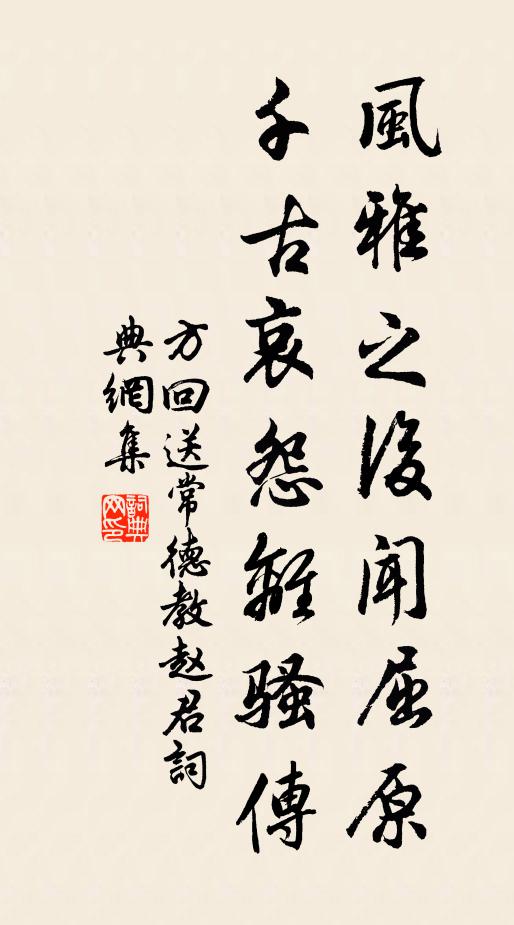 風雅之後聞屈原
千古哀怨離騷傳
方回送常德教赵君詞
典網集
詞典
网印